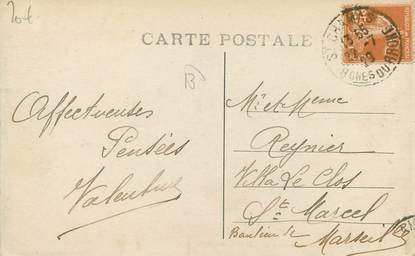 20€
CARTE POSTALE
ST CHAMAS
BCHES DU RHONE
13 35
B
Affectueuses
Pensées
Valentine
Mr et Mme
Reynier
Villa Le Clos
St Marcel
Banlieu de Marseille